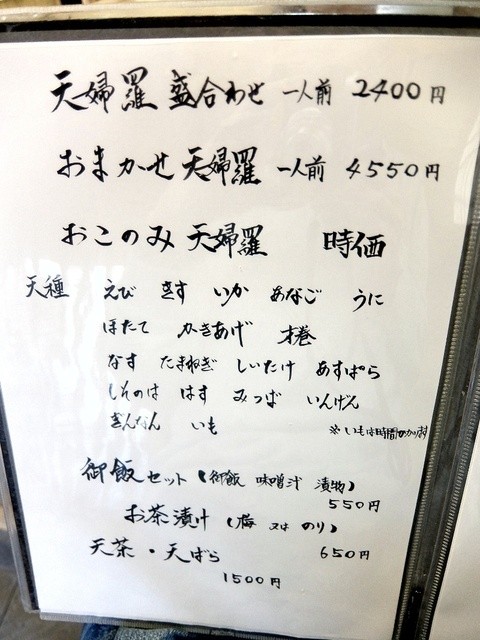 天婦羅 盛合わせ 一人前 2400円
おまかせ 天婦羅 一人前 4550円
おこのみ 天婦羅 時価
天種 えび きす いか あなご うに
ほたて かきあげ 才巻
なす たまねぎ しいたけ あすぱら
しそのは はす みつば いんげん
ぎんなん いも
※いもは時間がかかります
御飯セット (御飯 味噌汁 漬物)
550円
お茶漬け (梅 又は のり)
650円
天茶・天ばら
1500円